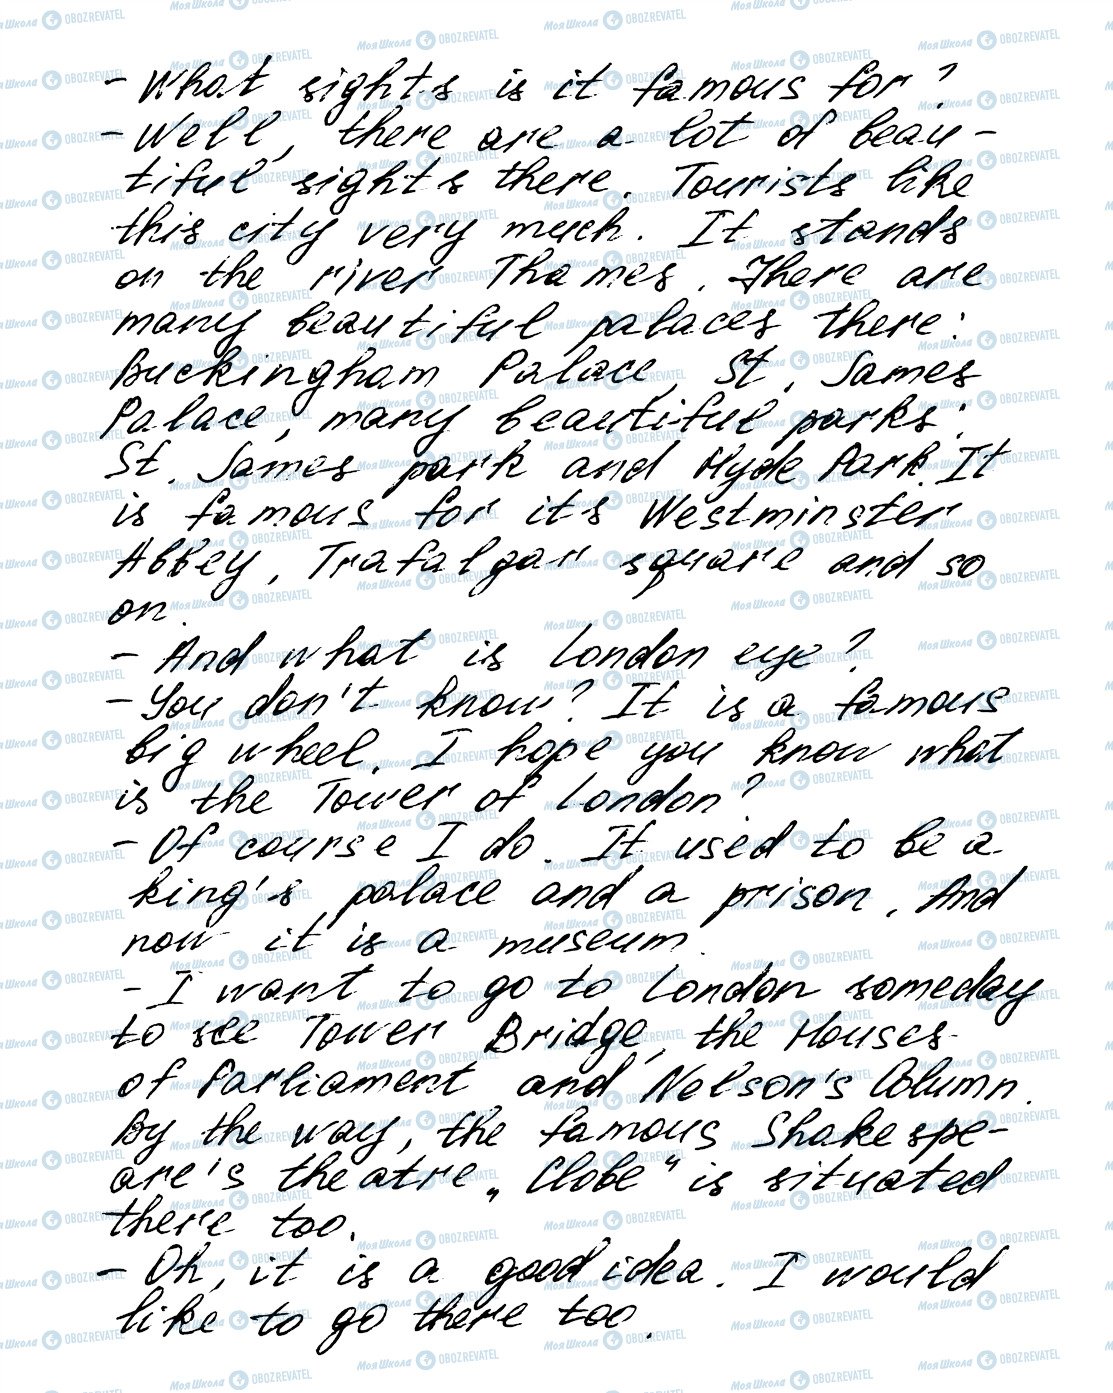 - What sights is it famous for?
- Well, there are a lot of beau-
tiful sights there. Tourists like
this city very much. It stands
on the river Thames. There are
many beautiful palaces there:
Buckingham Palace, St. James
Palace, many beautiful parks:
St. James park and Hyde Park. It
is famous for it's Westminster
Abbey, Trafalgar square and so
on.
- And what is London eye?
- You don't know? It is a famous
big wheel. I hope you know what
is the Tower of London?
- Of course I do. It used to be a
king's palace and a prison. And
now it is a museum.
- I want to go to London someday
to see Tower Bridge, the Houses
of Parliament and Nelson's Column.
By the way, the famous Shakespe-
are's theatre „Globe“ is situated
there too.
- Oh, it is a good idea. I would
like to go there too.